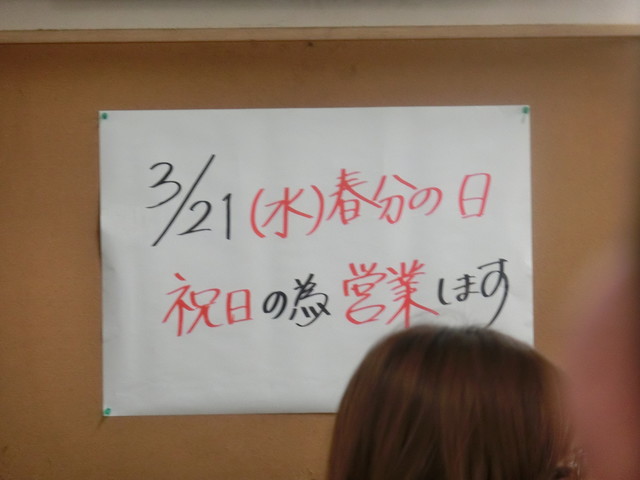 3/21(水)春分の日
祝日の為営業します